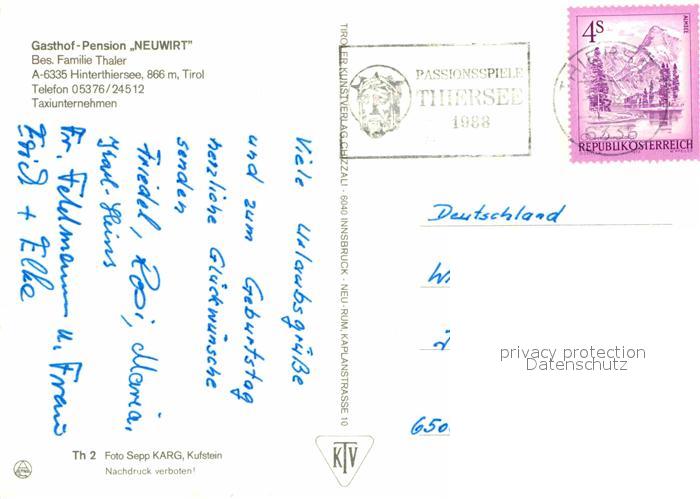 Gasthof-Pension „NEUWIRT"
Bes. Familie Thaler
A-6335 Hinterthiersee, 866 m, Tirol
Telefon 05376/24512
Taxiunternehmen
Viele Urlaubsgrüße
und zum Geburtstag
herzliche Glückwünsche
senden
Friedel, Rosi, Maria,
Karl-Heins
Fr. Feldmann u. Frau
Erich + Elke
Th 2 Foto Sepp KARG, Kufstein
Nachdruck verboten!
TIROLER KUNSTVERLAG CHIZZALI · 6040 INNSBRUCK · NEU-RUM, KAPLANSTRASSE 10
KTV
PASSIONSSPIELE
THIERSEE
1988
4S
ALMSEE
REPUBLIK ÖSTERREICH
THIERSEE
6335
Deutschland
650
privacy protection
Datenschutz